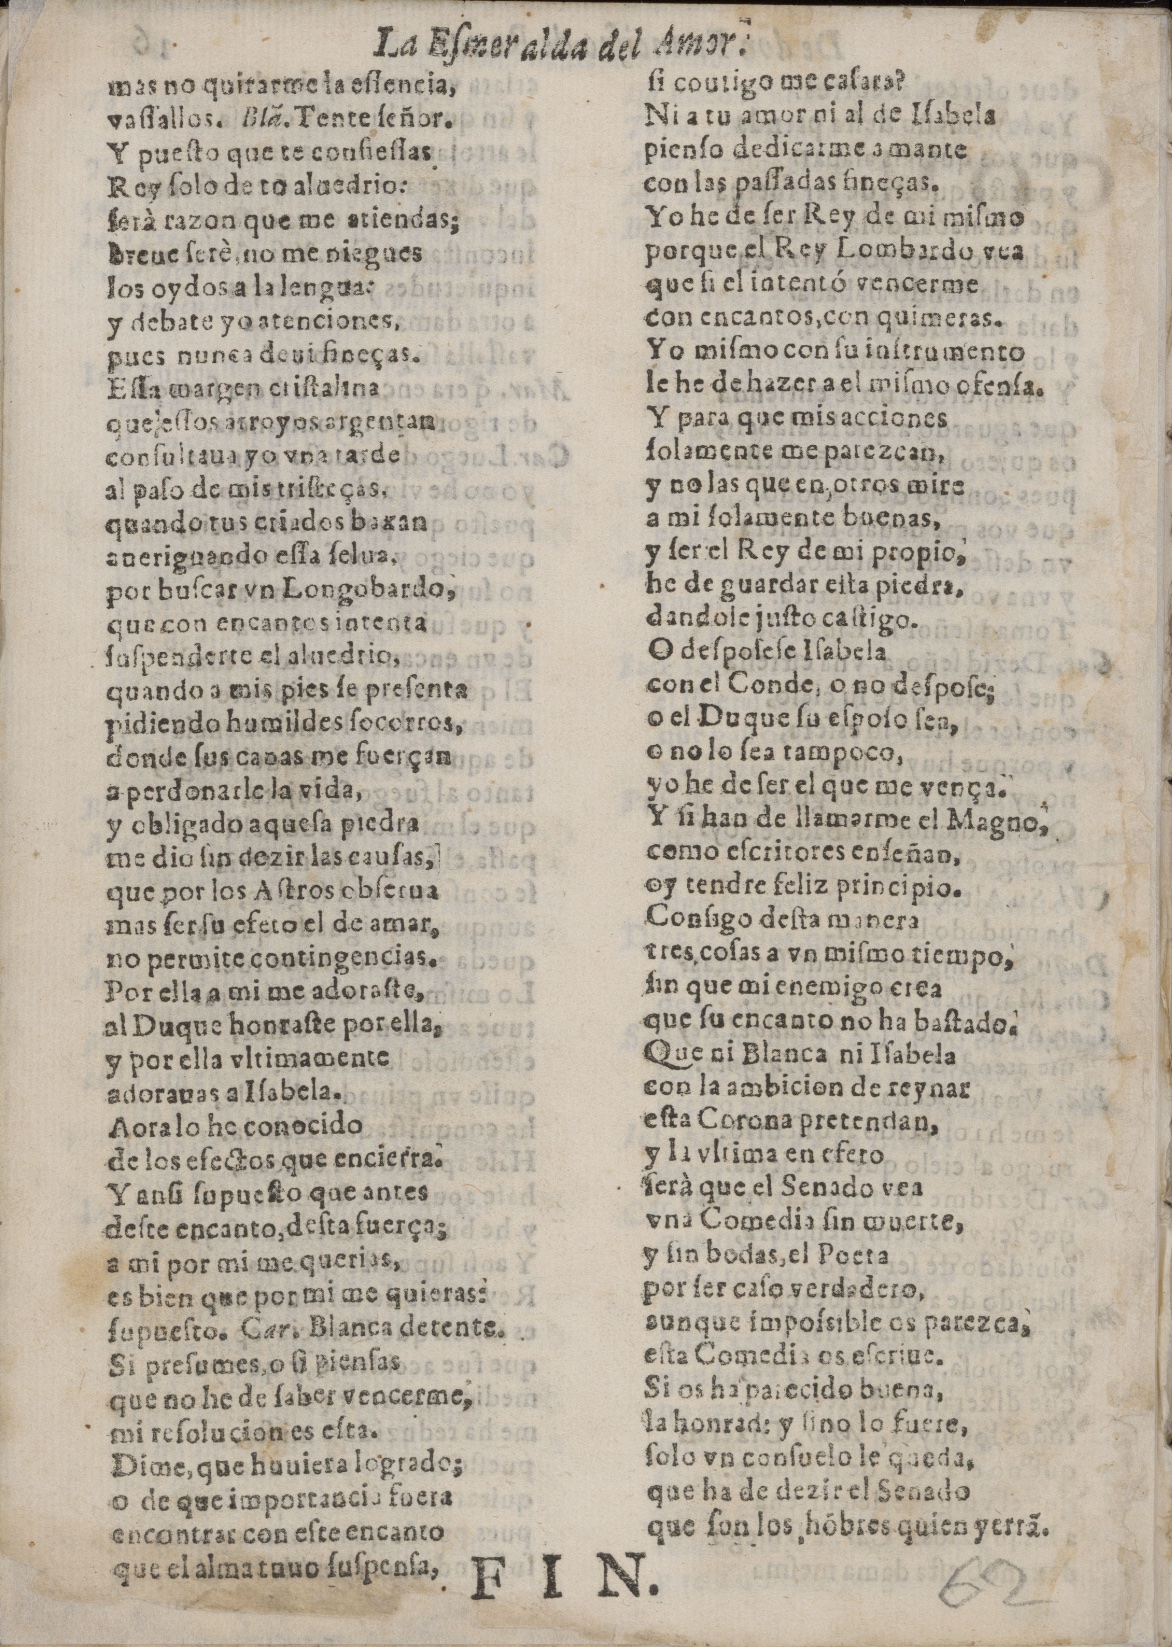 La Eſmeralda del Amor.
mas no quitarme la eſſencia,
vaſſallos. Blã. Tente ſeñor.
Y pueſto que te confieſſas
Rey ſolo de to aluedrio:
ſerà razon que me atiendas;
breue ſerè, no me niegues
los oydos a la lengua:
y debate yo atenciones,
pues nunca deui fineças.
Eſſa margen criſtalina
que eſſos arroyos argentan
conſultaua yo vna tarde
al paſo de mis triſteças,
quando tus criados baxan
aueriguando eſſa ſelua,
por buſcar vn Longobardo,
que con encantos intenta
ſuſpenderte el aluedrio,
quando a mis pies ſe preſenta
pidiendo humildes ſocorros,
donde ſus canas me fuerçan
a perdonarle la vida,
y obligado aqueſa piedra
me dio ſin dezir las cauſas,
que por los Aſtros obſerua
mas ſer ſu efeto el de amar,
no permite contingencias.
Por ella a mi me adoraſte,
al Duque honraſte por ella,
y por ella vltimamente
adorauas a Iſabela.
Aora lo he conocido
de los efectos que encierra.
Y anſi ſupueſto que antes
deſte encanto, deſta fuerça;
a mi por mi me querias,
es bien que por mi me quieras:
ſupueſto. Car. Blanca detente.
Si preſumes, o ſi pienſas
que no he de ſaber vencerme,
mi reſolucion es eſta.
Dime, que huuiera logrado;
o de que importancia fuera
encontrar con eſte encanto
que el alma tuuo ſuſpenſa,
ſi coutigo me caſara?
Ni a tu amor ni al de Iſabela
pienſo dedicarme amante
con las paſſadas fineças.
Yo he de ſer Rey de mi miſmo
porque el Rey Lombardo vea
que ſi el intentó vencerme
con encantos, con quimeras.
Yo miſmo con ſu inſtrumento
le he de hazer a el miſmo ofenſa.
Y para que mis acciones
ſolamente me parezcan,
y no las que en otros mire
a mi ſolamente buenas,
y ſer el Rey de mi propio,
he de guardar eſta piedra,
dandole juſto caſtigo.
O deſpoſeſe Iſabela
con el Conde, o no deſpoſe;
o el Duque ſu eſpoſo ſea,
o no lo ſea tampoco,
yo he de ſer el que me vença.
Y ſi han de llamarme el Magno,
como eſcritores enſeñan,
oy tendre feliz principio.
Conſigo deſta manera
tres coſas a vn miſmo tiempo,
ſin que mi enemigo crea
que ſu encanto no ha baſtado.
Que ni Blanca ni Iſabela
con la ambicion de reynar
eſta Corona pretendan,
y la vltima en efeto
ſerà que el Senado vea
vna Comedia ſin muerte,
y ſin bodas, el Poeta
por ſer caſo verdadero,
aunque impoſsible os parezca,
eſta Comedia os eſcriue.
Si os ha parecido buena,
la honrad: y ſino lo fuere,
ſolo vn conſuelo le queda,
que ha de dezir el Senado
que ſon los hõbres quien yerrã.
FIN.
62